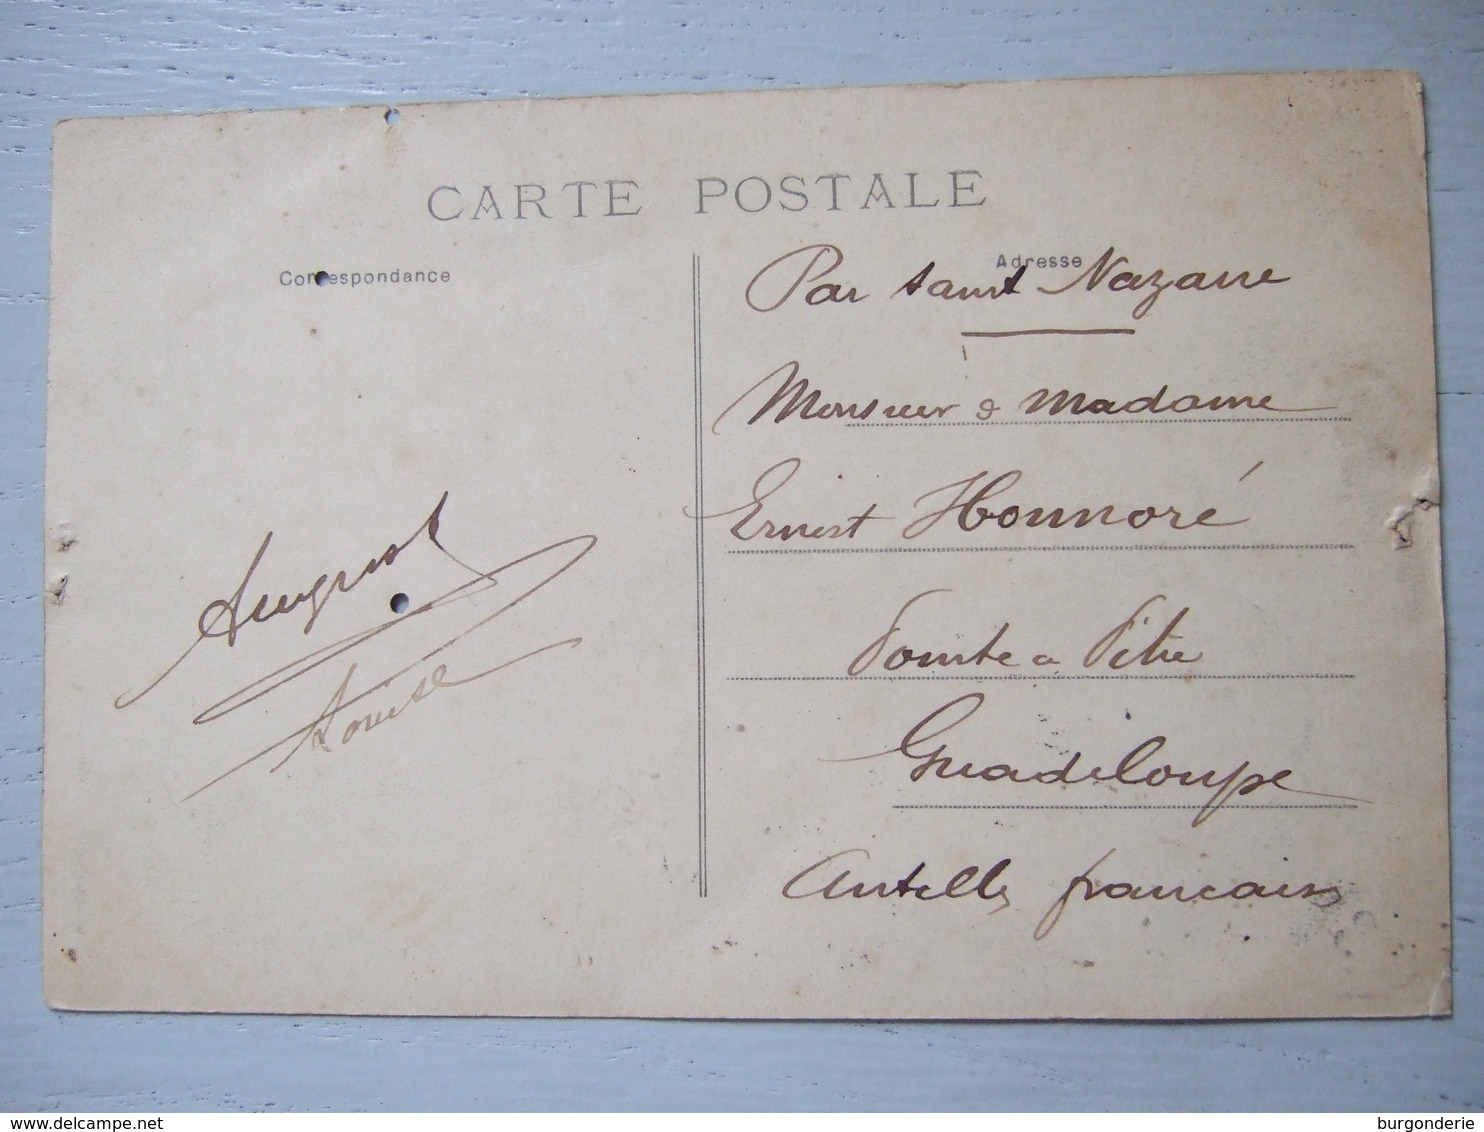 CARTE POSTALE
Correspondance
Adresse
Par saint Nazaire
Monsieur & Madame
Ernest Honnoré
Pointe a Pitre
Guadeloupe
Antilles francaises
August
Louise
delcampe.net
burgonderie